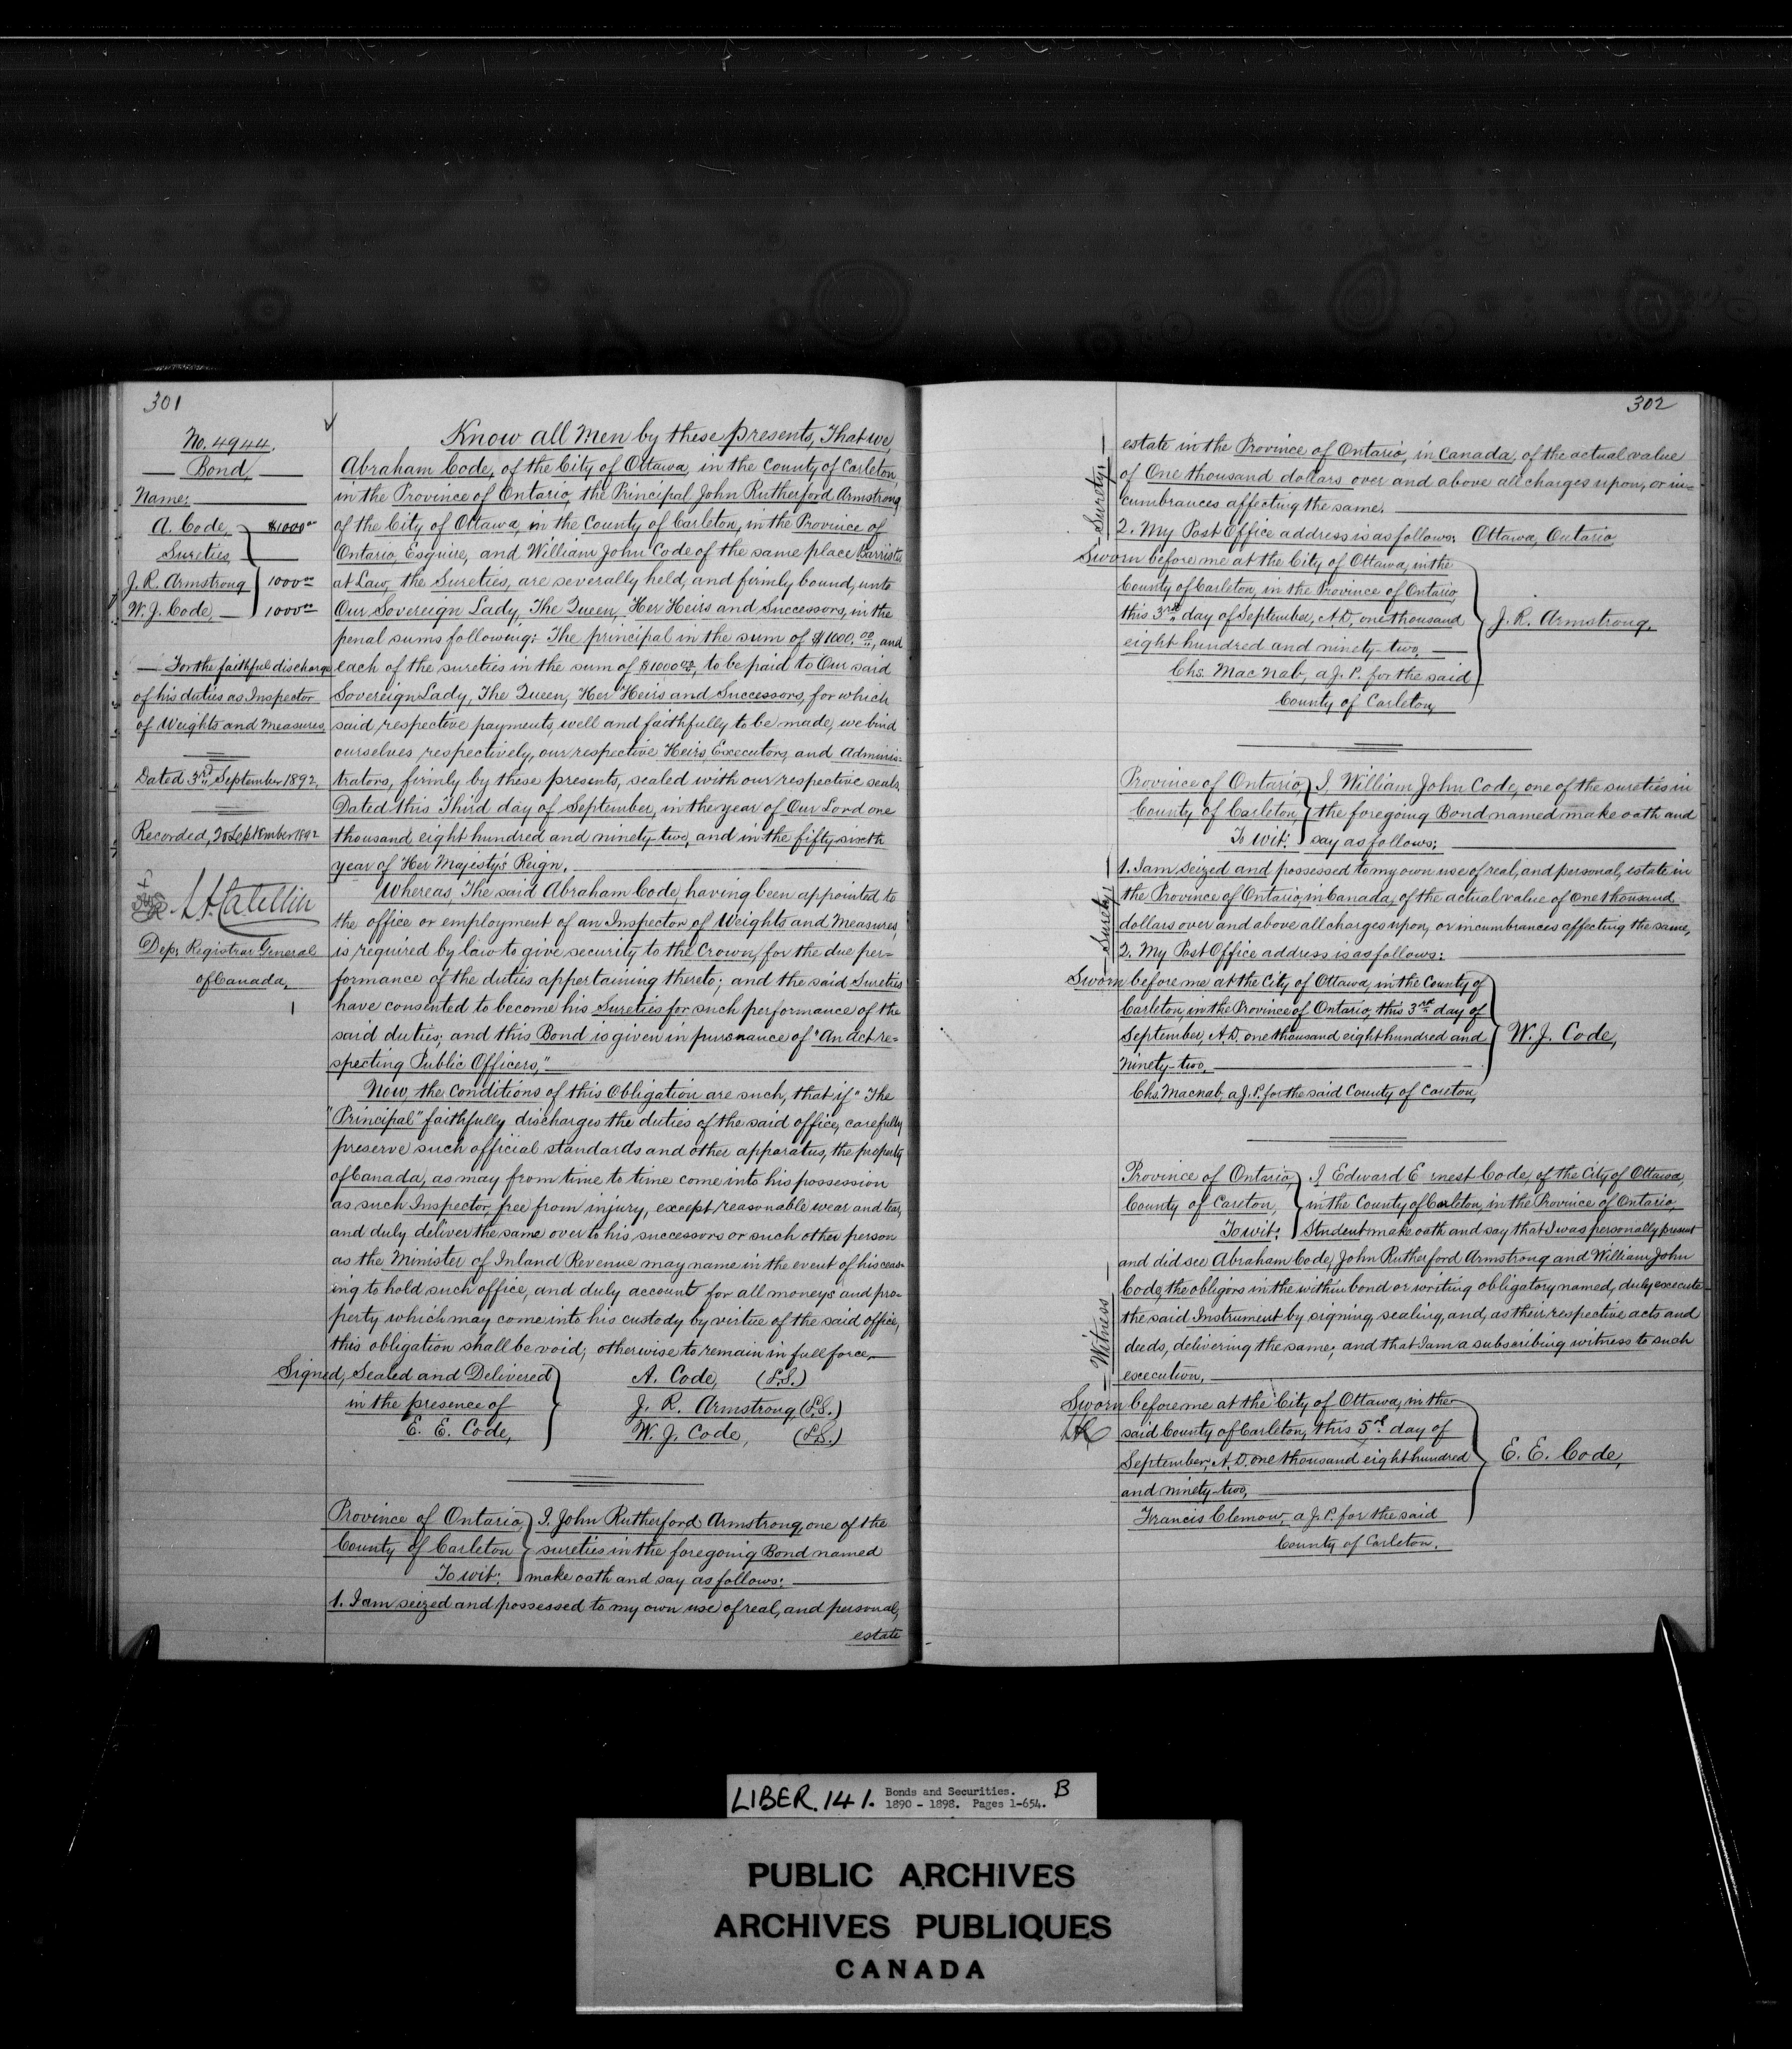 301
No. 4944.
Bond,
Name:
A. Code, $1000 00
Sureties
J. R. Armstrong 1000 00
W. J. Code, 1000 00
For the faithful discharge
of his duties as Inspector
of Weights and Measures,
Dated 3rd September 1892.
Recorded, 20 September 1892
Dep. Registrar General
of Canada,
Know all Men by these presents, That we,
Abraham Code, of the City of Ottawa, in the County of Carleton,
in the Province of Ontario, the Principal John Rutherford Armstrong,
of the City of Ottawa, in the County of Carleton, in the Province of
Ontario, Esquire, and William John Code of the same place Barrister
at Law, the Sureties, are severally held, and firmly bound, unto
Our Sovereign Lady, The Queen, Her Heirs and Successors, in the
penal sums following: The principal in the sum of $1000.00, and
each of the sureties in the sum of $1000.00, to be paid to Our said
Sovereign Lady, The Queen, Her Heirs and Successors, for which
said respective payments, well and faithfully to be made, we bind
ourselves, respectively, our respective Heirs, Executors, and Adminis-
trators, firmly by these presents, sealed with our respective seals,
Dated this Third day of September, in the year of Our Lord one
thousand eight hundred and ninety-two, and in the fifty-sixth
year of Her Majesty's Reign.
Whereas, The said Abraham Code, having been appointed to
the office or employment of an Inspector of Weights and Measures,
is required by law to give security to the Crown, for the due per-
formance of the duties appertaining thereto; and the said Sureties
have consented to become his Sureties for such performance of the
said duties; and this Bond is given in pursuance of "An Act re-
specting Public Officers,"
Now, the conditions of this Obligation are such, that if "The
"Principal" faithfully discharges the duties of the said office, carefully
preserve such official standards and other apparatus, the property
of Canada, as may from time to time come into his possession
as such Inspector, free from injury, except reasonable wear and tear,
and duly deliver the same over to his successors or such other person
as the Minister of Inland Revenue may name in the event of his ceas-
ing to hold such office, and duly account for all moneys and pro-
perty which may come into his custody by virtue of the said office,
this obligation shall be void; otherwise to remain in full force.
Signed, Sealed and Delivered A. Code, (L.S.)
in the presence of J. R. Armstrong (L.S.)
E. E. Code, W. J. Code, (L.S.)
Province of Ontario, I, John Rutherford Armstrong, one of the
County of Carleton sureties in the foregoing Bond named
To wit: make oath and say as follows:
1. I am seized and possessed to my own use of real, and personal,
estate
302
Surety
estate in the Province of Ontario, in Canada, of the actual value
of One thousand dollars over and above all charges upon, or in-
cumbrances affecting the same.
2. My Post Office address is as follows: Ottawa, Ontario
Sworn before me at the City of Ottawa, in the
County of Carleton, in the Province of Ontario,
this 3rd day of September, A.D. one thousand J. R. Armstrong,
eight hundred and ninety-two.
Chs. Mac Nab, a J. P. for the said
County of Carleton,
Province of Ontario, I, William John Code, one of the sureties in
County of Carleton, the foregoing Bond named make oath and
To wit: say as follows:
Surety
1. I am seized and possessed to my own use of real, and personal, estate in
the Province of Ontario, in Canada, of the actual value of one thousand
dollars over and above all charges upon, or incumbrances affecting the same,
2. My Post Office address is as follows:
Sworn before me at the City of Ottawa, in the County of
Carleton, in the Province of Ontario, this 3rd day of
September, A.D. one thousand eight hundred and W. J. Code,
ninety-two,
Chs. Macnab, a J. P. for the said County of Carleton,
Province of Ontario, I, Edward Ernest Code, of the City of Ottawa,
County of Carleton, in the County of Carleton, in the Province of Ontario,
To wit: Student make oath and say that I was personally present
Witness
and did see Abraham Code, John Rutherford Armstrong and William John
Code, the obligors in the within bond or writing obligatory named, duly execute
the said Instrument by signing, sealing, and, as their respective acts and
deeds, delivering the same; and that I am a subscribing witness to such
execution,
Sworn before me at the City of Ottawa, in the
said County of Carleton, this 5th day of
September, A.D. one thousand eight hundred E. E. Code,
and ninety-two,
Francis Clemow, a J. P. for the said
County of Carleton.
LIBER. 141. Bonds and Securities. B
1890 - 1898. Pages 1-654.
PUBLIC ARCHIVES
ARCHIVES PUBLIQUES
CANADA